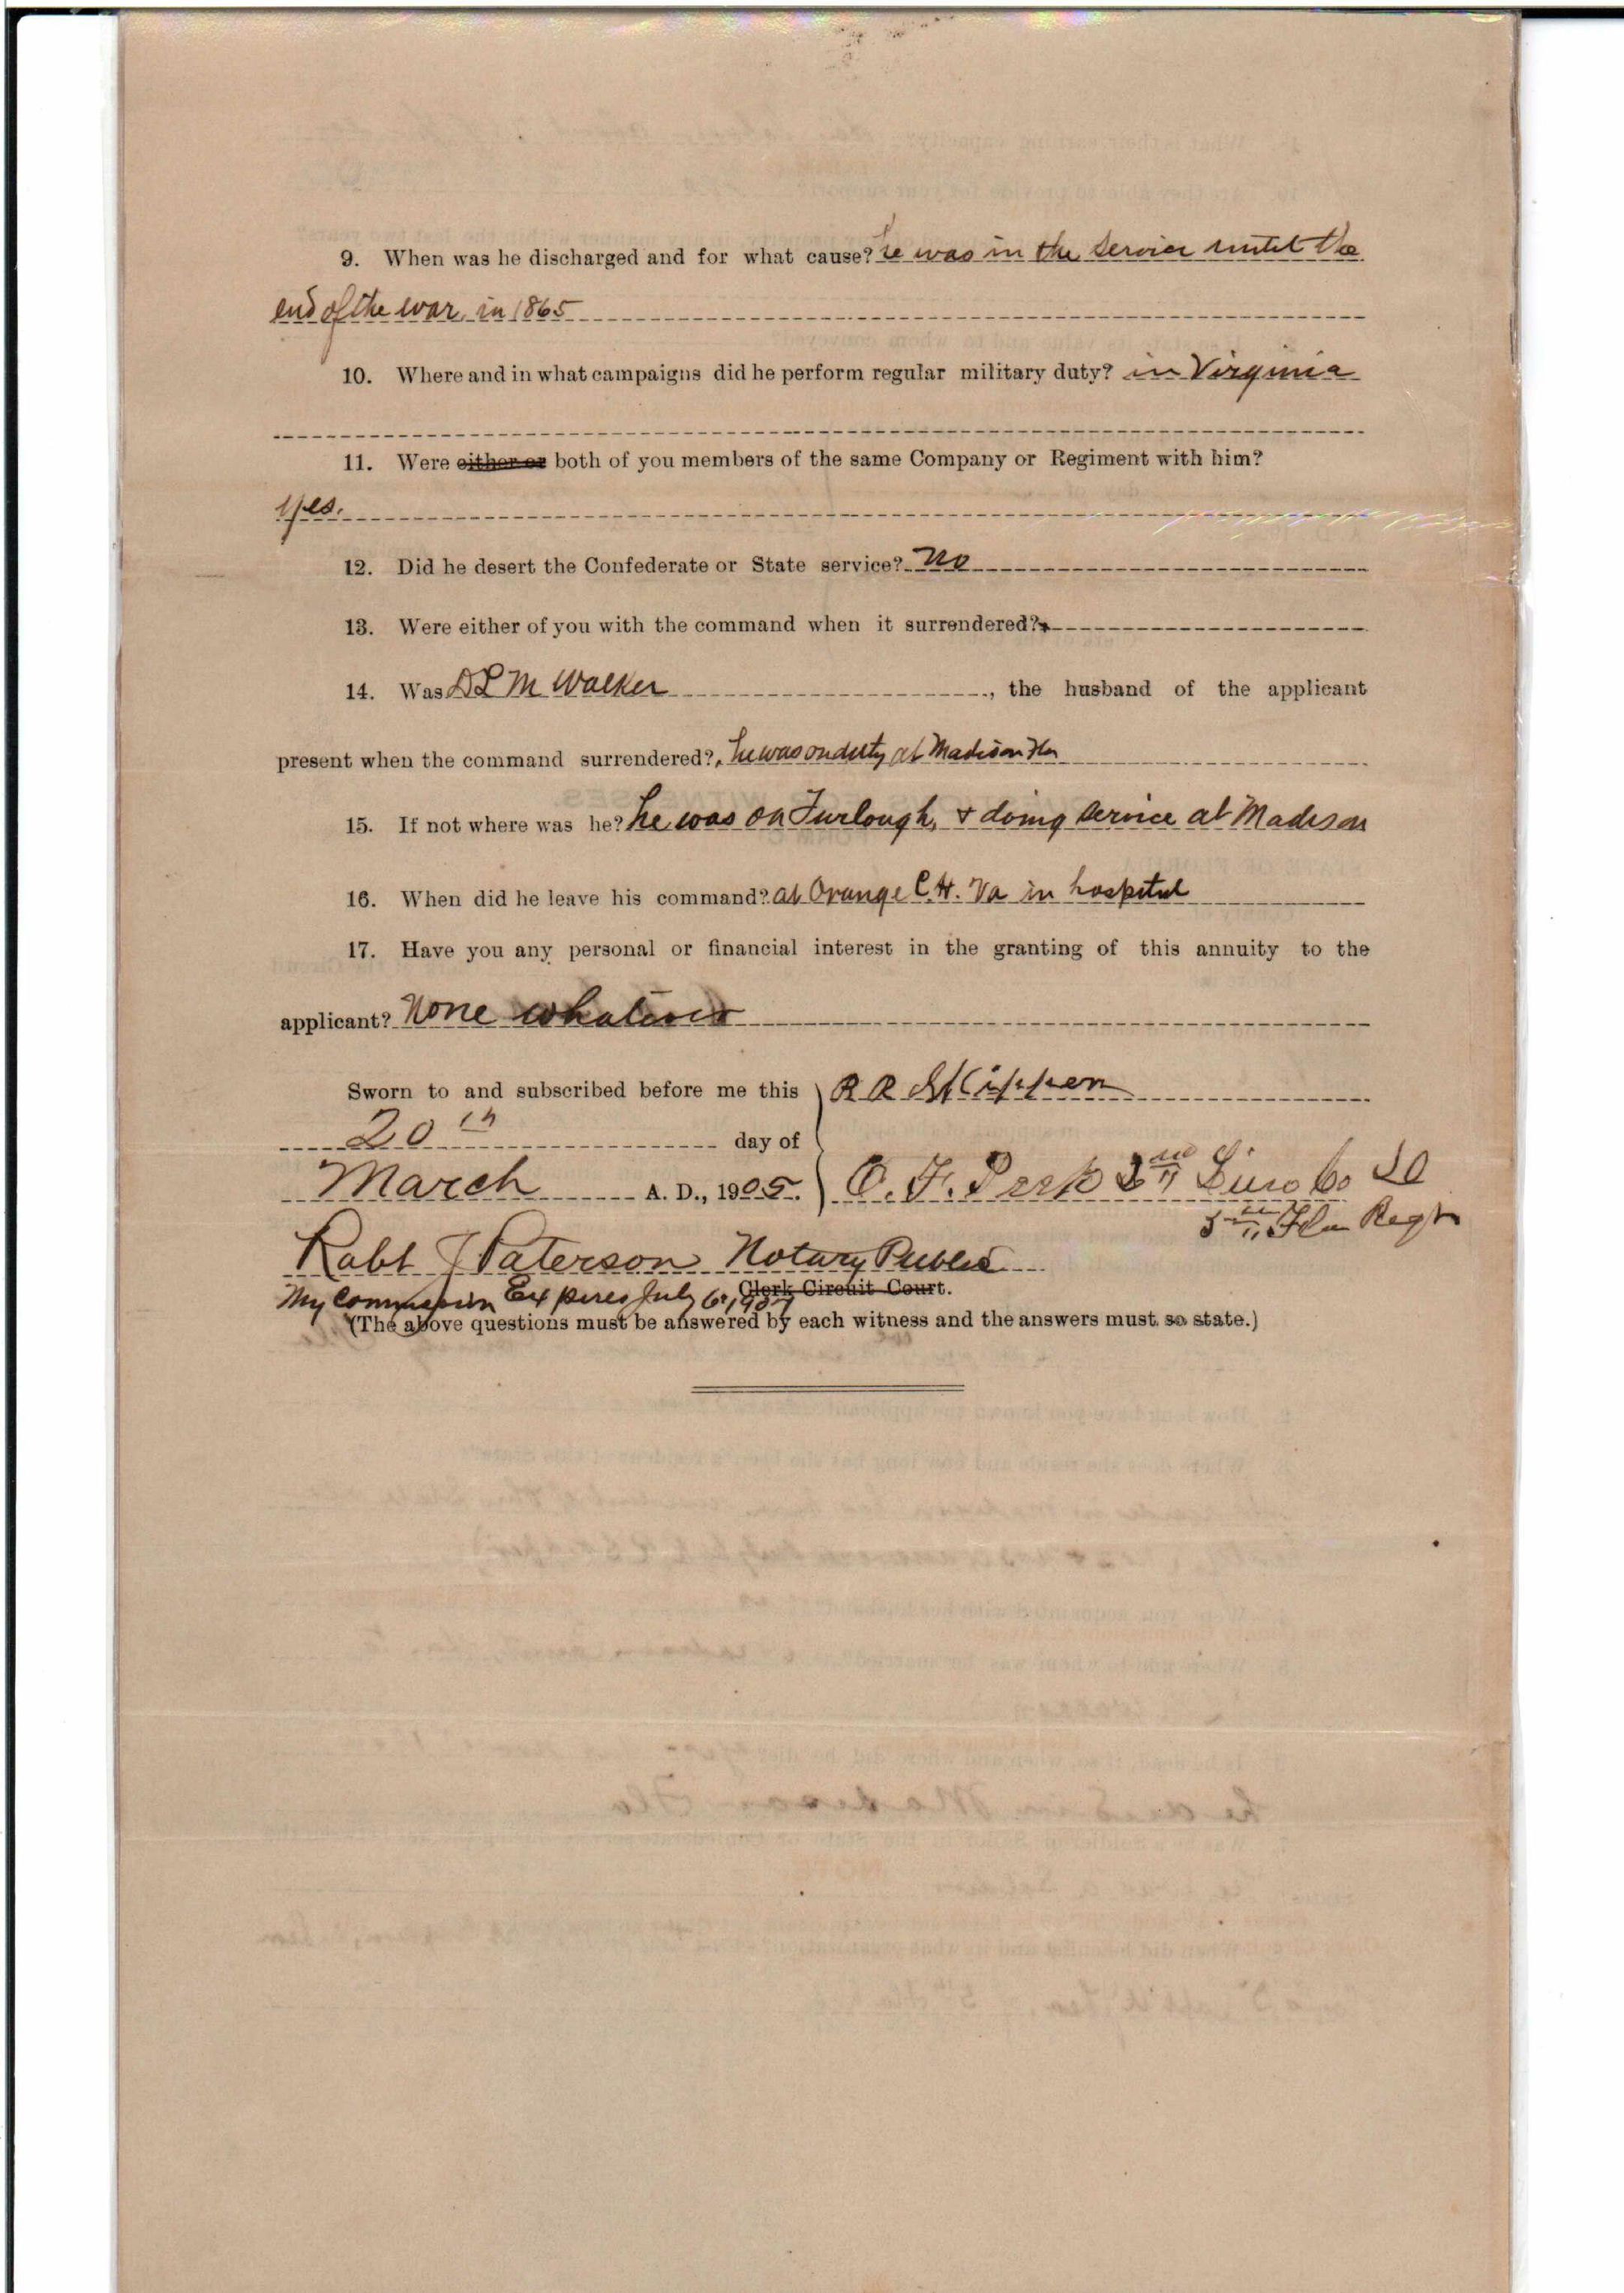 9. When was he discharged and for what cause? he was in the service untill the
end of the war, in 1865
10. Where and in what campaigns did he perform regular military duty? in Virginia
11. Were either or both of you members of the same Company or Regiment with him?
yes.
12. Did he desert the Confederate or State service? no
13. Were either of you with the command when it surrendered?
14. Was D L M Walker, the husband of the applicant
present when the command surrendered? he was on duty at Madison Fla
15. If not where was he? he was on Furlough, & doing service at Madison
16. When did he leave his command? at Orange C.H. Va in hospital
17. Have you any personal or financial interest in the granting of this annuity to the
applicant? None whatever
Sworn to and subscribed before me this R R Skipper
20th day of
March A. D., 1905. O. F. Peek Lieu Co D
5th Fla Regt
Robt J Paterson Notary Public
Clerk Circuit Court.
My Commission Expires July 6, 1907
(The above questions must be answered by each witness and the answers must so state.)